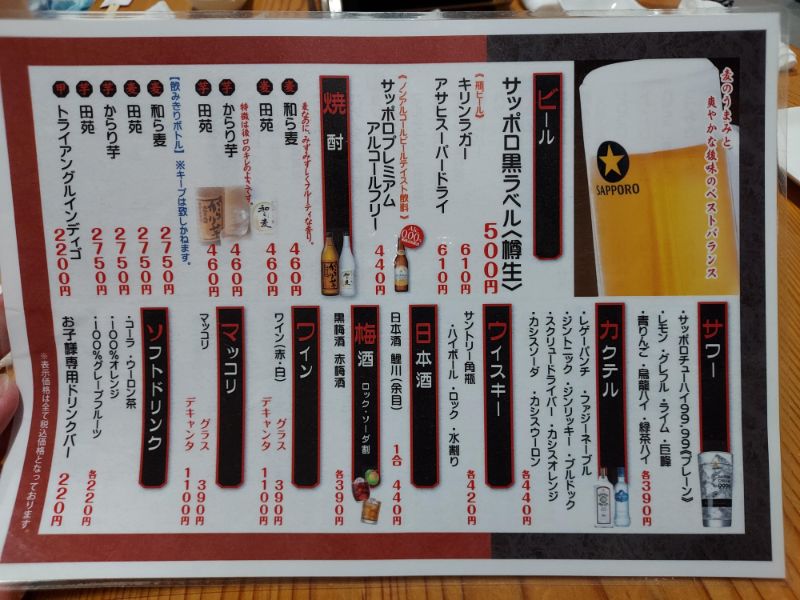 麦のうまみと
爽やかな後味のベストバランス
SAPPORO
ビール
サッポロ黒ラベル〈樽生〉
500円
《瓶ビール》
キリンラガー 610円
アサヒスーパードライ 610円
《ノンアルコールビールテイスト飲料》
サッポロプレミアム
アルコールフリー 440円
焼酎
麦なのに、みずみずしくフルーティな香り。
麦 和ら麦 460円
麦 田苑 460円
特徴は後口のキレのよさです。
芋 からり芋 460円
芋 田苑 460円
【飲みきりボトル】※キープは致しかねます。
麦 和ら麦 2750円
麦 田苑 2750円
芋 からり芋 2750円
芋 田苑 2750円
甲 トライアングルインディゴ 2200円
サワー
・サッポロチューハイ99.99(プレーン)
・レモン・グレフル・ライム・巨峰
・青りんご・烏龍ハイ・緑茶ハイ 各390円
カクテル
・レゲーパンチ ・ファジーネーブル
・ジントニック ・ジンリッキー ・ブルドック
・スクリュードライバー ・カシスオレンジ
・カシスソーダ ・カシスウーロン 各440円
ウィスキー
サントリー角瓶
・ハイボール・ロック・水割り 各420円
日本酒
日本酒 鯉川(余目) 1合 440円
梅酒 ロック・ソーダ割
黒梅酒 赤梅酒 各390円
ワイン
ワイン(赤・白) グラス 390円
デキャンタ 1100円
マッコリ
マッコリ グラス 390円
デキャンタ 1100円
ソフトドリンク
・コーラ・ウーロン茶
・100%オレンジ
・100%グレープフルーツ 各220円
お子様専用ドリンクバー 220円
※表示価格は全て税込価格となっております。